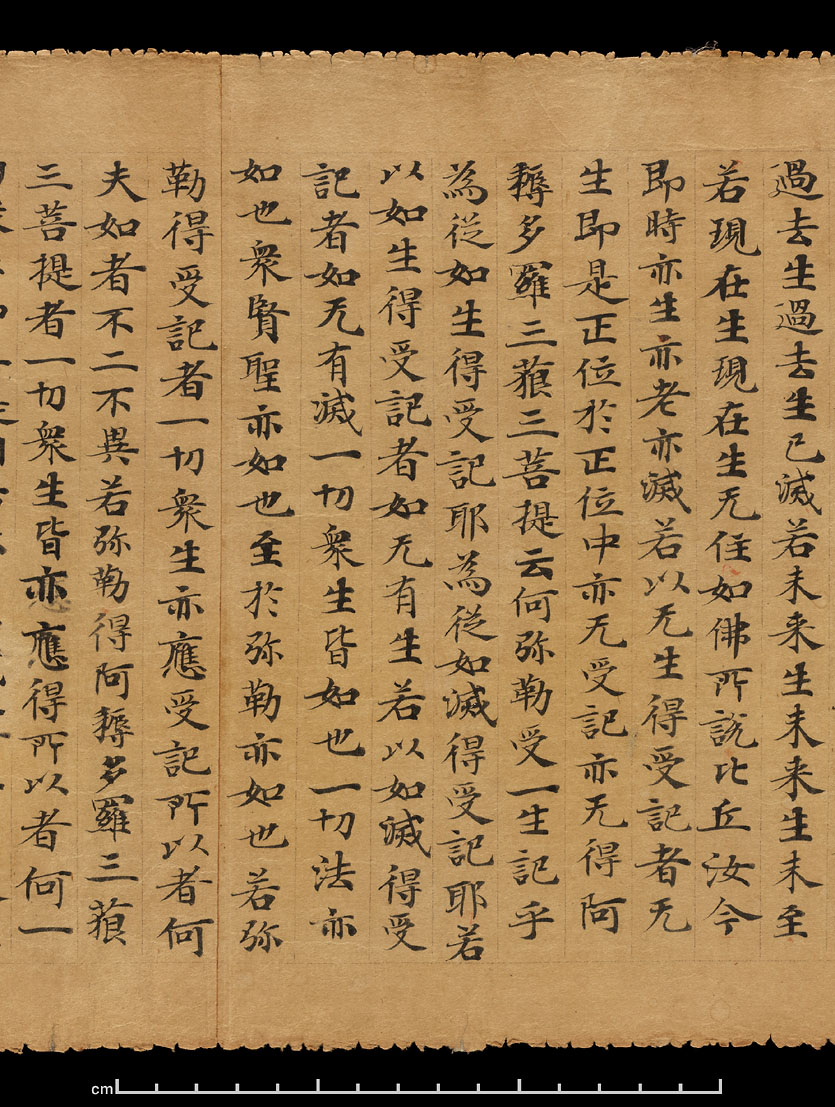 過去生過去生已滅若未来生未来生未至
若現在生現在生无住如佛所說比丘汝今
即時亦生亦老亦滅若以无生得受記者无
生即是正位於正位中亦无受記亦无得阿
耨多羅三藐三菩提云何弥勒受一生記乎
為從如生得受記耶為從如滅得受記耶若
以如生得受記者如无有生若以如滅得受
記者如无有滅一切衆生皆如也一切法亦
如也衆賢聖亦如也至於弥勒亦如也若弥
勒得受記者一切衆生亦應受記所以者何
夫如者不二不異若弥勒得阿耨多羅三藐
三菩提者一切衆生皆亦應得所以者何一
cm